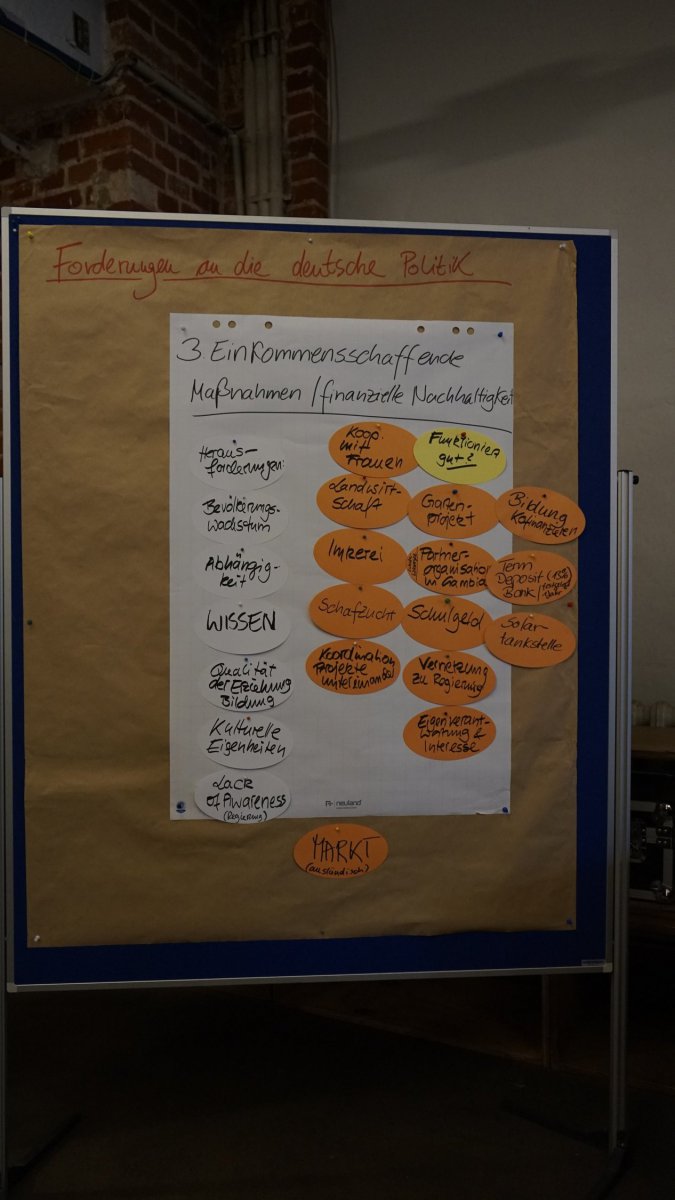 Forderungen an die deutsche Politik
3. Einkommensschaffende
Maßnahmen / finanzielle Nachhaltigkeit
Heraus-
forderungen:
Bevölkerungs-
wachstum
Abhängig-
keit
WISSEN
Qualität
der Erziehung
Bildung
Kulturelle
Eigenheiten
Lack
of Awareness
(Regierung)
Koop.
mit
Frauen
Landwirt-
schaft
Imkerei
Schafzucht
Koordination
Projekte
untereinander
Funktioniert
gut?
Garten-
projekt
Partner-
organisation
in Gambia
Schulgeld
Vernetzung
zu Regierung
Eigenverant-
wortung &
Interesse
Bildung
Kofinanzieren
Term
Deposit
Bank/
Solar-
tankstelle
MARKT
(ausländisch)
neuland